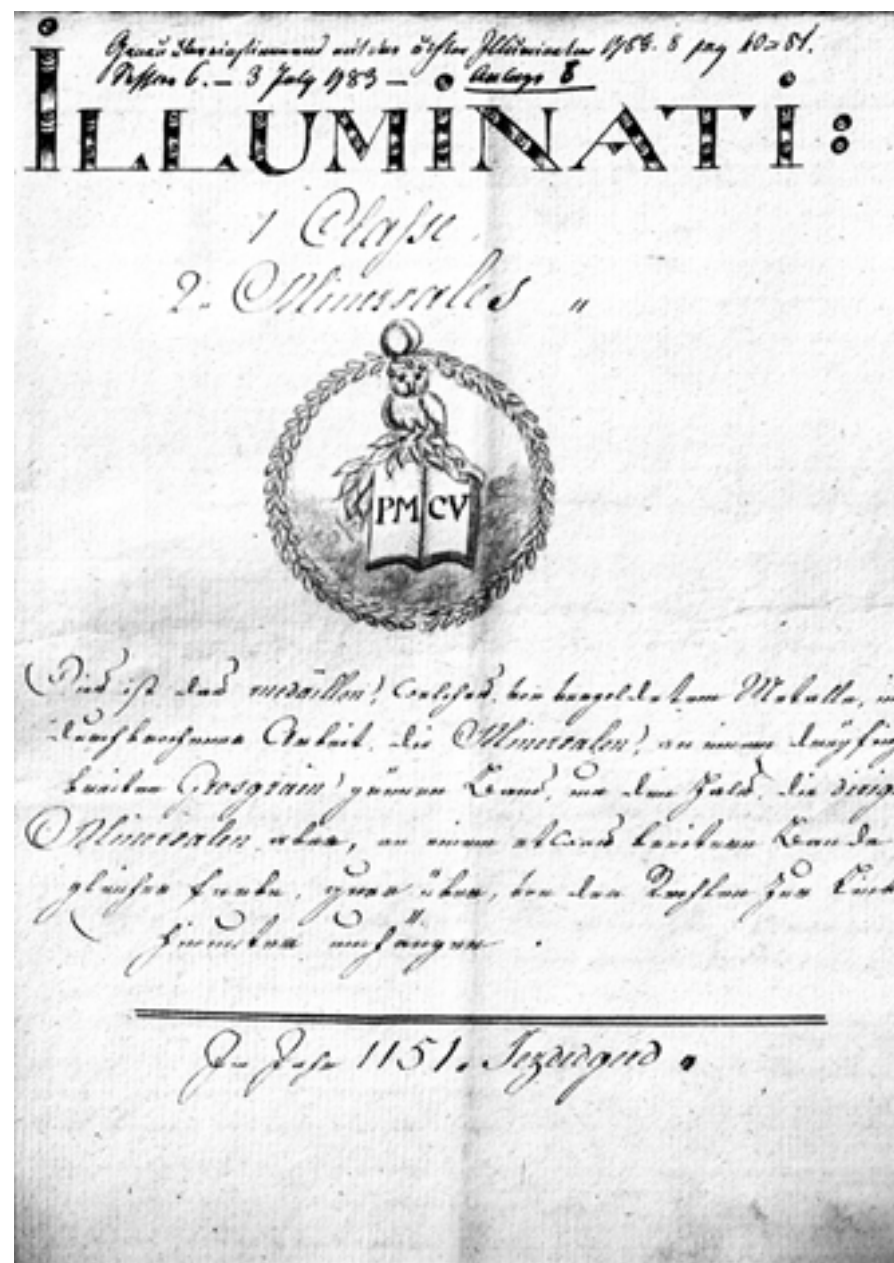 Genau übereinstimmend mit der ächte Illuminaten 1788. 8 pag
6. — 3 July 1783 —
ILLUMINATI:
1 Classe.
2. Minervales "
PM CV
Dies ist das medaillon, welches, von vergoldetem Metalle, in
durchbrochener Arbeit, die Minervalen, an einem
breiten Grosgrain grünen Band, um den Hals, die dirig
Minervalen aber, an einem etwas breitern Bande
gleicher Farbe, quer über, von der Rechten zur Link
herunter umhängen.
Im Jahr 1151. Jezdegerd.